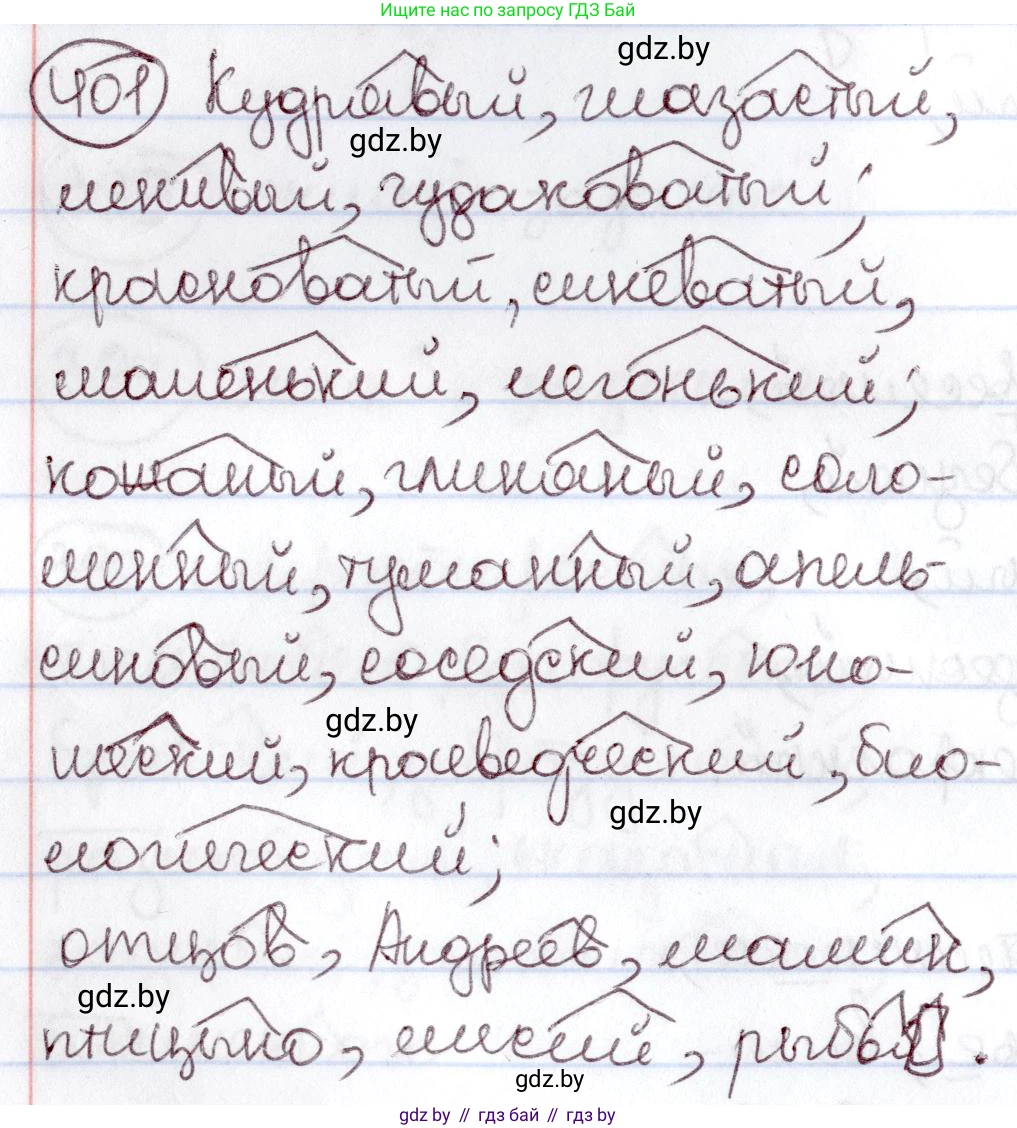 Ищите нас по запросу ГДЗ Бай
gdz.by
401 Кудрявый, глазастый,
gdz.by
ленивый, чудаковатый;
красноватый, синеватый,
маленький, лёгонький;
кожаный, глиняный, соло-
менный, туманный, апель-
синовый, соседский, юно-
gdz.by
шеский, краеведческий, био-
gdz.by
логический;
отцов, Андреев, мамин,
gdz.by
птицыно, лисий, рыбья.
gdz.by
gdz.by // гдз бай // гдз by